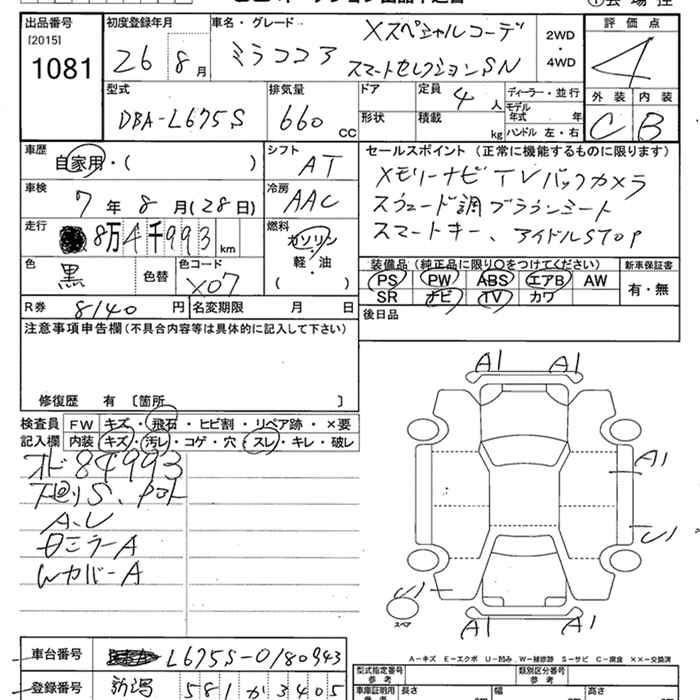 出品番号
[2015]
1081
初度登録年月
26 8 月
車名・グレード
ミラココア
Xスペシャルコーデ
スマートセレクションSN
2WD
・
4WD
評価点
4
外装 内装
C B
型式
DBA-L675S
排気量
660 cc
ドア
形状
定員 4 人
積載 kg
ディーラー・並行
モデル年式 年
ハンドル 左・右
車歴
自家用・( )
シフト
AT
車検
7年 8月(28日)
冷房
AAC
走行
8万4千993 km
燃料
ガソリン
軽・油
( )
色
黒
色替
色コード
X07
R券 8140 円
名変期限 月 日
セールスポイント (正常に機能するものに限ります)
メモリーナビ TV バックカメラ
スウェード調ブラウンシート
スマートキー、アイドルSTOP
装備品 (純正品に限り〇をつけてください)
PS PW ABS エアB AW
SR ナビ TV カワ
新車保証書
有・無
後日品
注意事項申告欄 (不具合内容等は具体的に記入して下さい)
修復歴 有 〔箇所 〕
検査員記入欄
FW キズ・飛石・ヒビ割・リペア跡・×要
内装 キズ・汚レ・コゲ・穴・スレ・キレ・破レ
オド84993
下廻りS、
A.U
ミラーA
WカバーA
A1 A1
A1
U1
U1
スペア
A1 A1
A－キズ E－エクボ U－凹み W－補修跡 S－サビ C－腐食 ××－交換済
車台番号 L675S-0180943
登録番号 新潟 581 か 3405
型式指定番号
参考
類別区分番号
参考
車庫証明用
長さ 幅 高さ